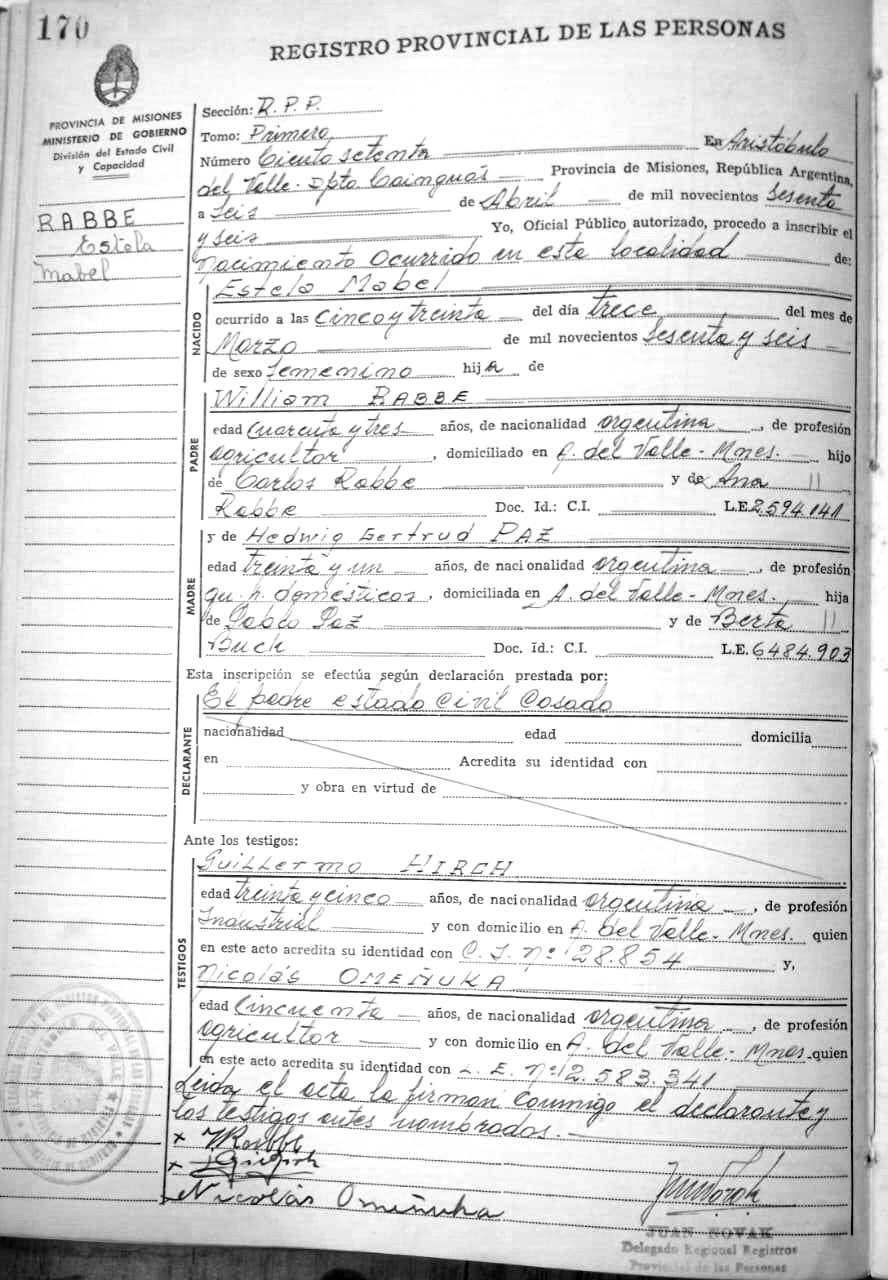 170
REGISTRO PROVINCIAL DE LAS PERSONAS
PROVINCIA DE MISIONES
MINISTERIO DE GOBIERNO
División del Estado Civil
y Capacidad
RABBE
Estela
Mabel
Sección: R. P. P.
Tomo: Primero
Número Ciento setenta En Aristóbulo
del Valle - Dpto Cainguás Provincia de Misiones, República Argentina,
a Seis de Abril de mil novecientos Sesenta
y seis Yo, Oficial Público autorizado, procedo a inscribir el
Nacimiento ocurrido en esta localidad de:
NACIDO
Estela Mabel
ocurrido a las Cinco y treinta del día trece del mes de
Marzo de mil novecientos Sesenta y seis
de sexo femenino hija de
PADRE
William RABBE
edad Cuarenta y tres años, de nacionalidad argentina, de profesión
agricultor, domiciliado en A. del Valle - Mnes. hijo
de Carlos Rabbe y de Ana //
Rabbe Doc. Id.: C.I. L.E. 2.594.141
MADRE
y de Hedwig Gertrud PAZ
edad treinta y un años, de nacionalidad argentina, de profesión
qu. h. domésticos, domiciliada en A. del Valle - Mnes. hija
de Pablo Paz y de Berta //
Buch Doc. Id.: C.I. L.E. 6484.903
Esta inscripción se efectúa según declaración prestada por:
DECLARANTE
El padre estado Civil Casado
nacionalidad edad domicilia
en Acredita su identidad con
y obra en virtud de
Ante los testigos:
TESTIGOS
Guillermo HIRCH
edad treinta y cinco años, de nacionalidad argentina, de profesión
Industrial y con domicilio en A. del Valle - Mnes. quien
en este acto acredita su identidad con C. I. nº 28.854 y,
Nicolás OMEÑUKA
edad Cincuenta años, de nacionalidad argentina, de profesión
agricultor y con domicilio en A. del Valle - Mnes. quien
en este acto acredita su identidad con L. E. nº 2.583.341
Leída el acta la firman conmigo el declarante y
los testigos antes nombrados.
x WRabbe
x
Nicolás Omeñuka
JUAN NOVAK
Delegado Regional Registros
Provincial de las Personas